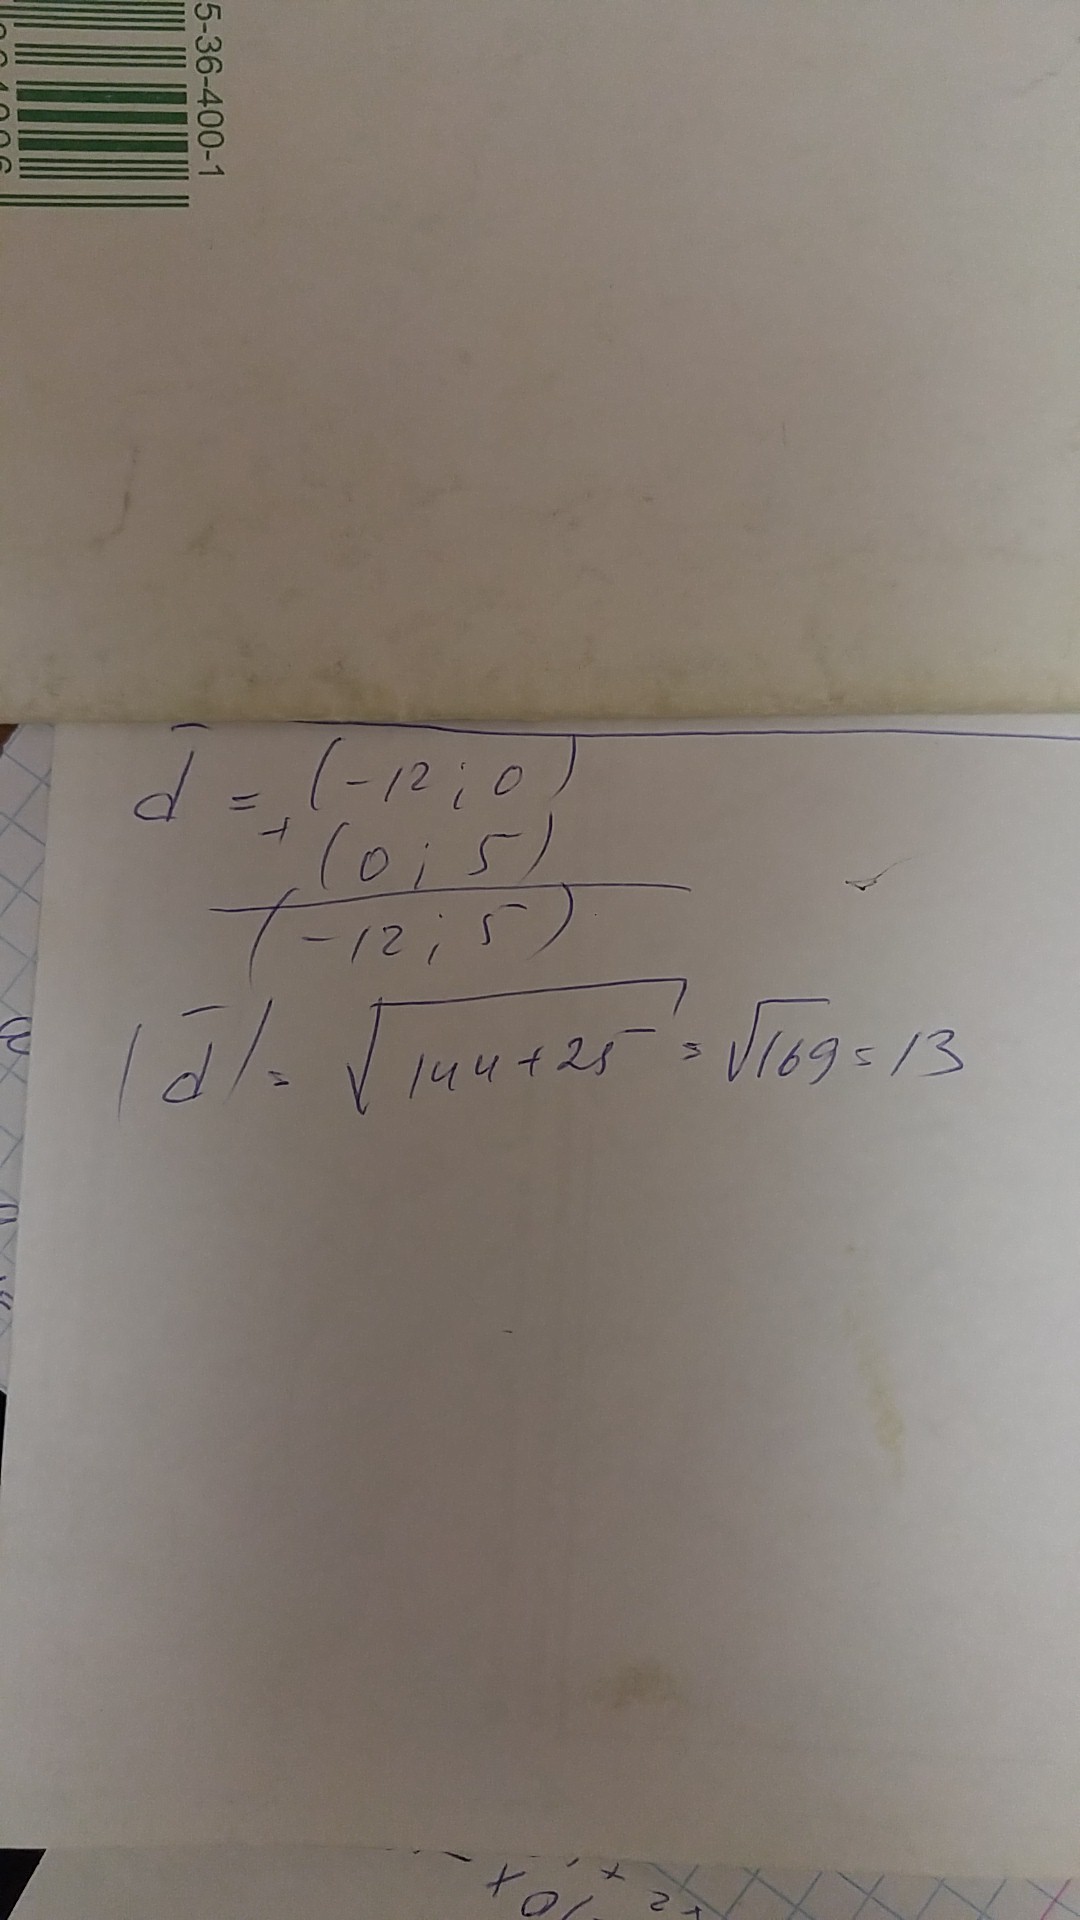 5-36-400-1
d̄ = (-12; 0)
+ (0; 5)
(-12; 5)
|d̄| = √144+25 = √169 = 13